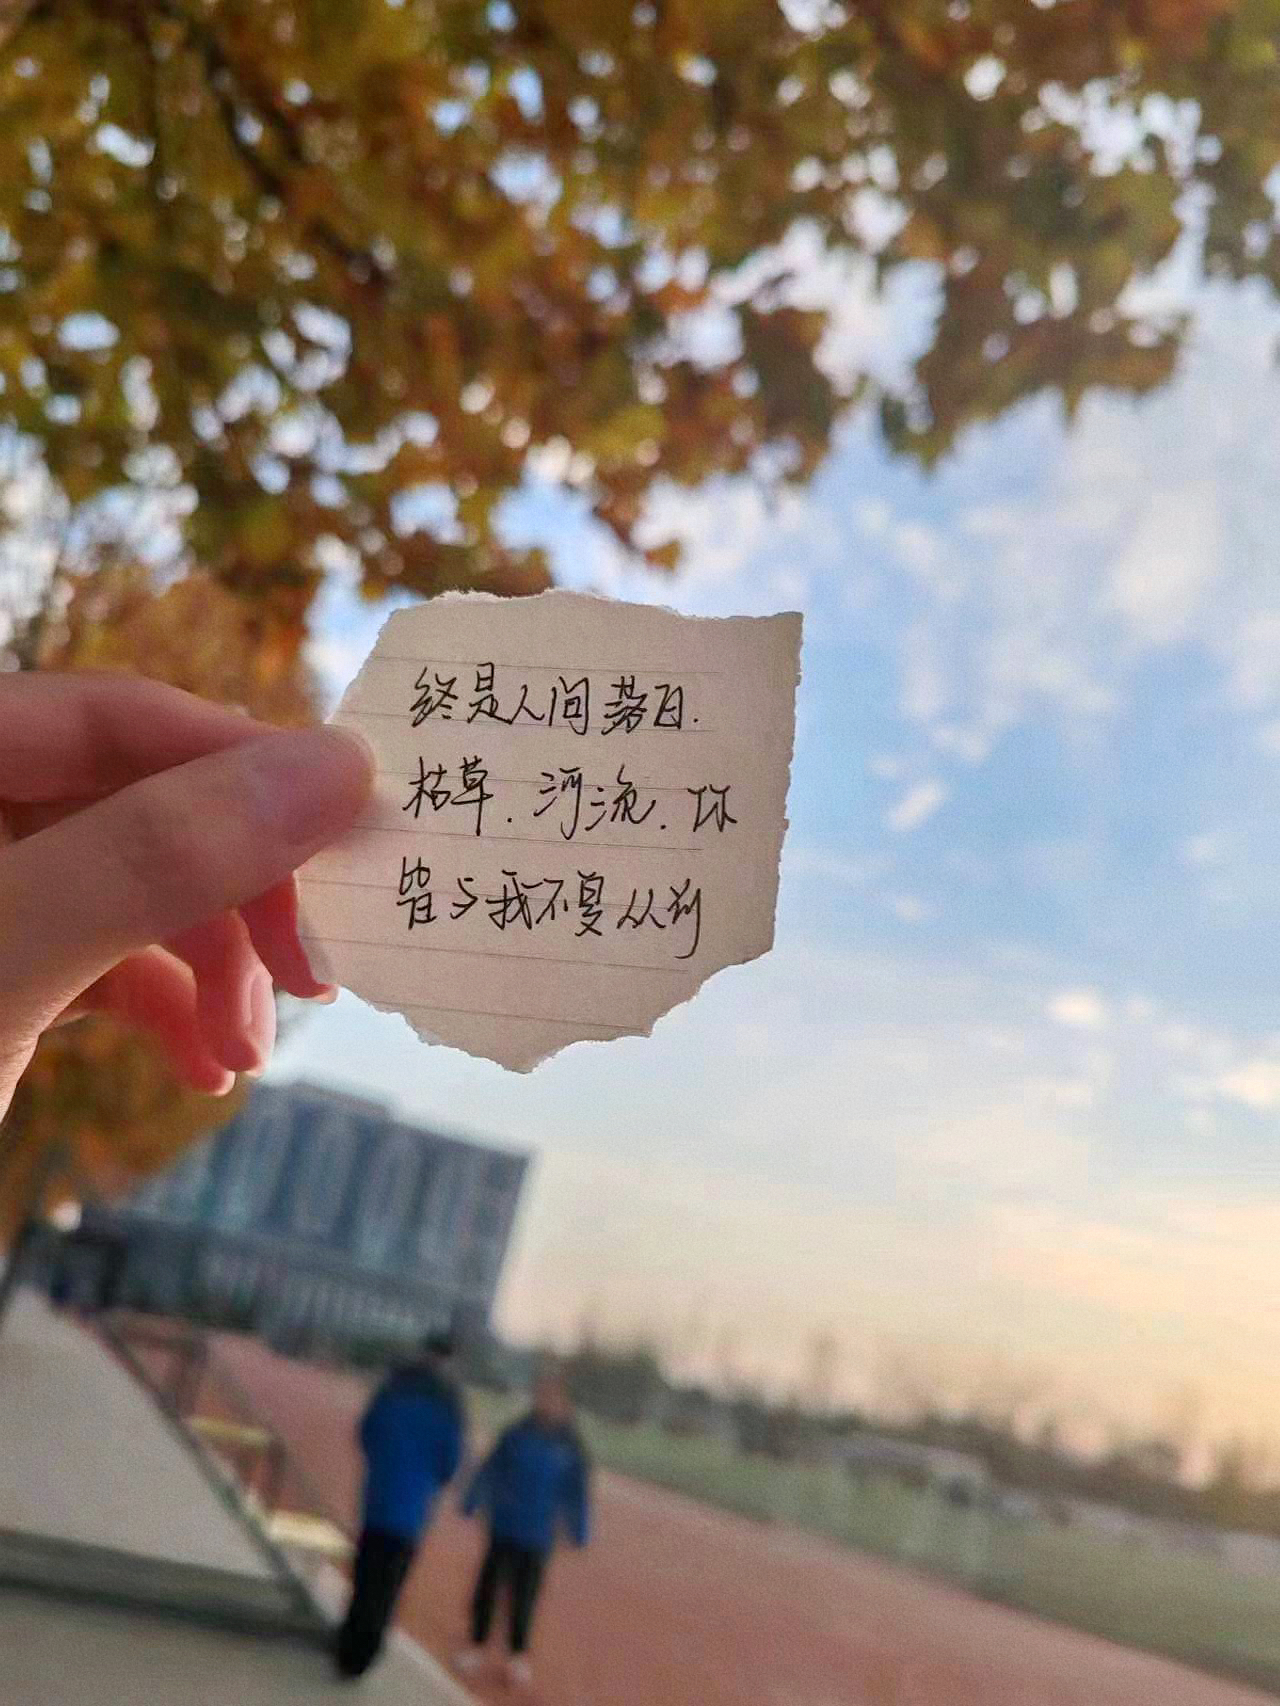 终是人间落日.
枯草.河流.你
皆与我不复从别